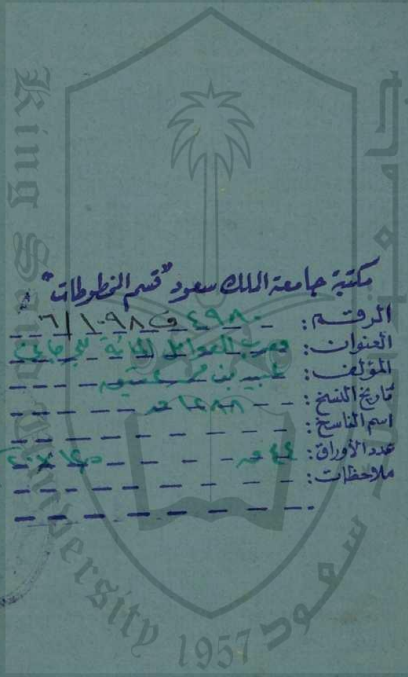 مكتبة جامعة الملك سعود "قسم المخطوطات"
الرقم: ٤٩٨٠ ف ١٠٩٨/٦
العنوان: معرب العوامل المائة للجرجاني
المؤلف: بن
تاريخ النسخ: ١٢٨٨ هـ
اسم الناسخ:
عدد الأوراق: ٤٤
ملاحظات:
King Saud University
1957
سعود